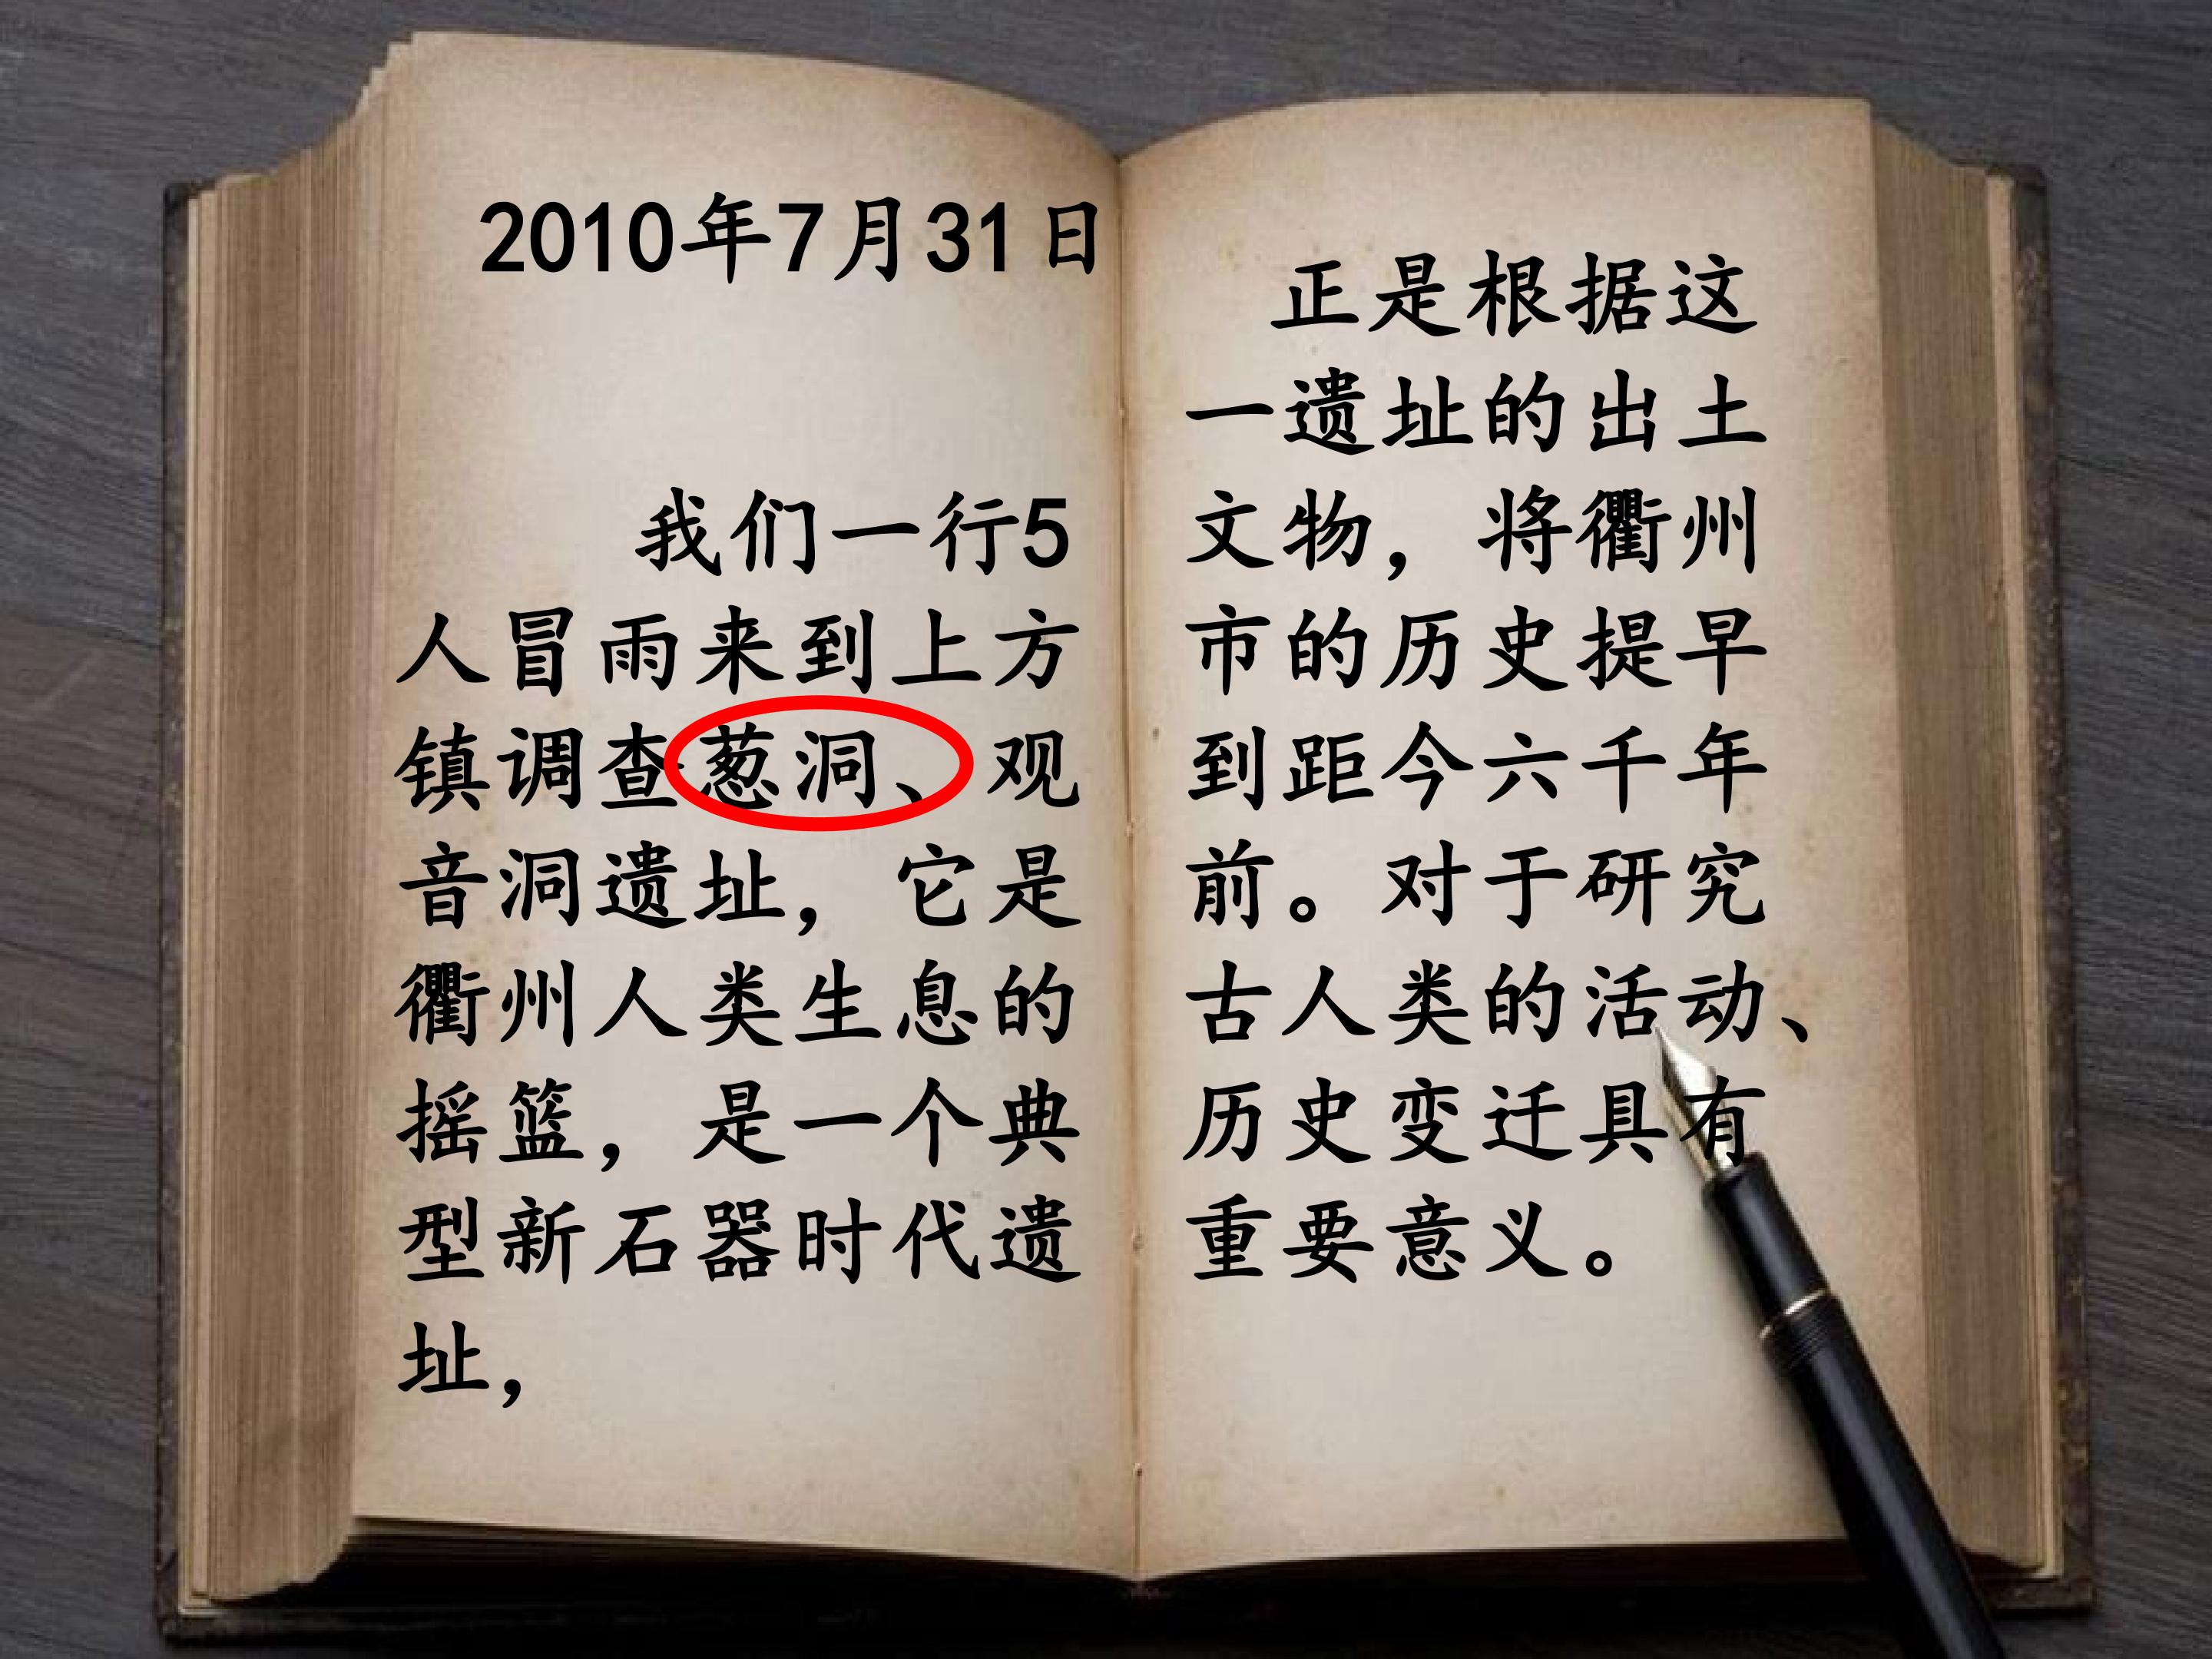 2010年7月31日
我们一行5
人冒雨来到上方
镇调查葱洞、观
音洞遗址，它是
衢州人类生息的
摇篮，是一个典
型新石器时代遗
址，
正是根据这
一遗址的出土
文物，将衢州
市的历史提早
到距今六千年
前。对于研究
古人类的活动、
历史变迁具有
重要意义。